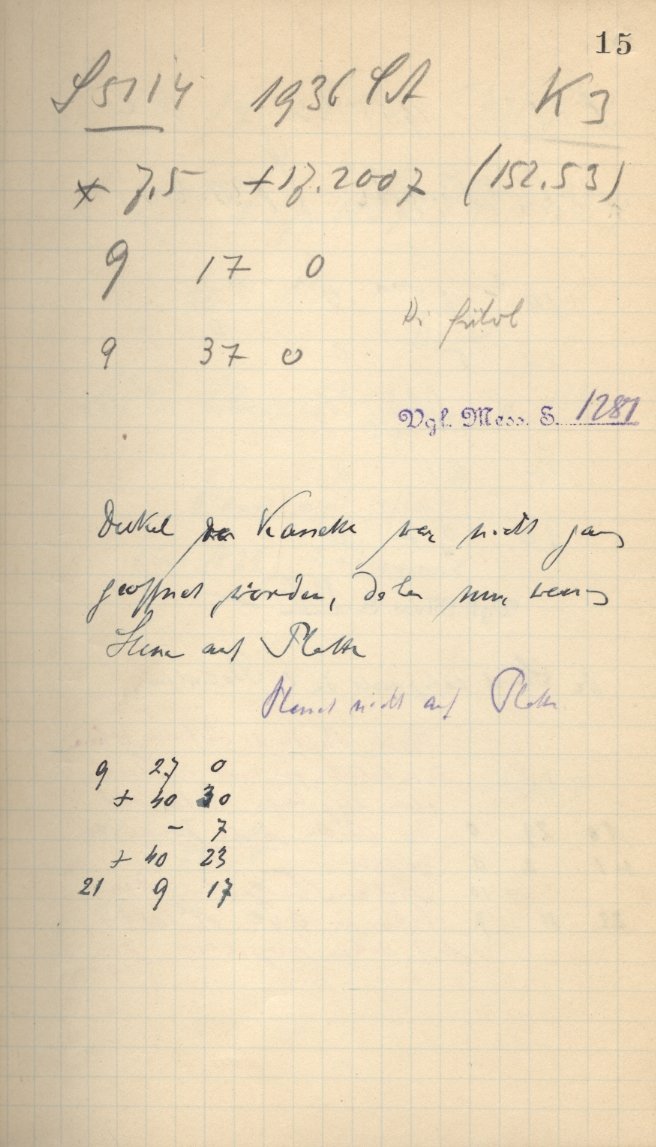 15
S 5114 1936 SA K 3
* 7,5 +17.2007 (152.53)
9 17 0
9 37 0
Vgl. Mess. S. 1287
Deckel der Kassette war nicht ganz
geöffnet worden, daher nur wenig
Sterne auf Platte
Planet nicht auf Platte
9 27 0
+ 40 30
- 7
+ 40 23
21 9 17